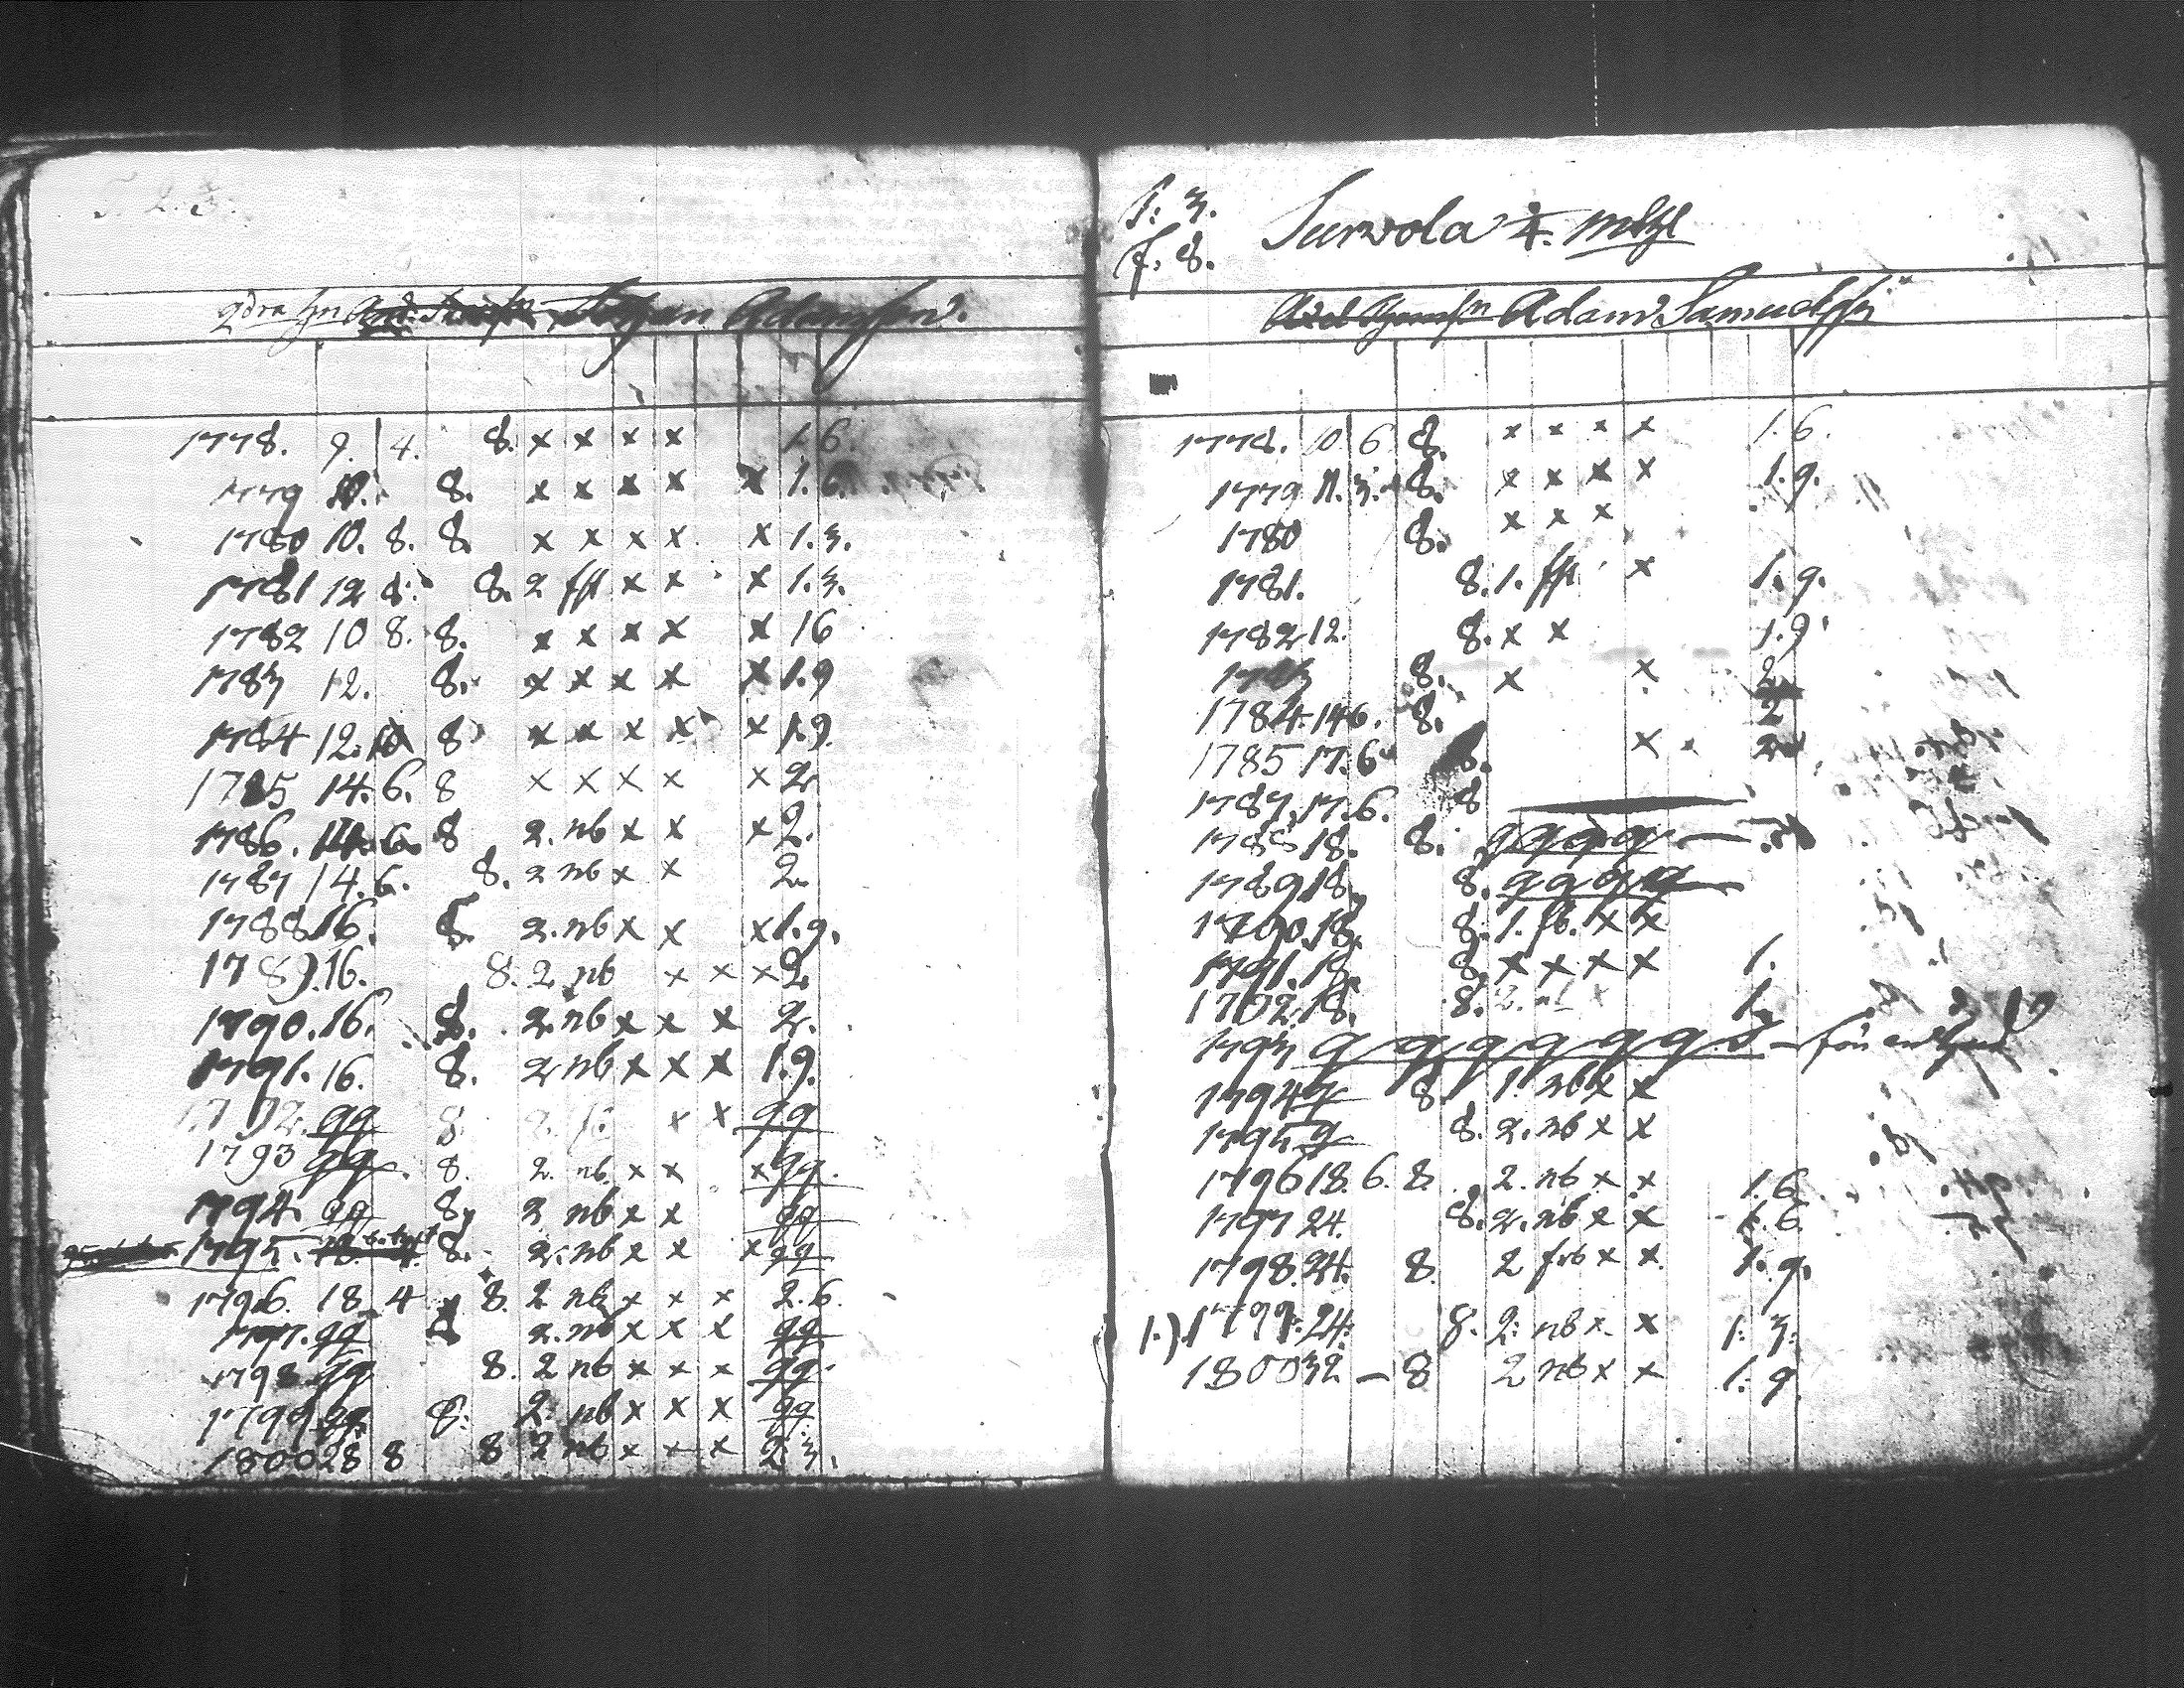 Johan Adamsson.
1778. 9. 4. 8. x x x x 1.6.
1779 10. 8. x x x x x 1.6.
1780 10. 8. 8. x x x x x 1.3.
1781 12 8. 8. 2 x x x 1.3.
1782 10 8. 8. x x x x x 16
1783 12. 8. x x x x x 1.9
1784 12. 8 x x x x x 1.9.
1785 14. 6. 8 x x x x x 2
1786. 14. 6. 8 2. nb x x x 2.
1787 14. 6. 8. 2 nb x x 2.
1788 16. 8. 2. nb x x x 1.9.
1789. 16. 8. 2 nb x x x 2
1790. 16. 8. 2. nb x x x 2.
1791. 16. 8. 2 nb x x x 1.9.
1792. qq 8. x x qq
1793 qq. 8. 2. nb. x x x qq.
1794. qq 8. 2 nb x x qq
1795. 8. 2. nb x x x qq
1796. 18 4 8. 2 nb x x x 2.6.
1797. qq 8 2. nb x x x qq
1798 qq 8. 2 nb x x x qq.
1799 qq. 8. 2. nb x x x qq.
1800 28 8 8 2 nb x x x 2 3.
1: 3.
f. 8.
Survola 4. mtl
Adam Samuelsson
1778. 10 6 8. x x x x 1.6.
1779 11. 3. 8. x x x x 1.9.
1780 8. x x x
1781. 8. 1. x 1.9.
1782 12. 8. x x 1.9
8. x x 2
1784. 14 6. 8. 2
1785 17. 6 8. x 2
1787. 17. 6. 8
1788 18. 8. q q q q
1789 18. 8. q q q q
1790. 18. 8. 1. x x
1791. 18. 8. x x x x 1.
1792. 18. 8. 2. x 1.
1793 q q q q q q
1794 q 8 1. nb x x
1795 q 8. 2. nb x x
1796 18. 6. 8. 2. nb x x 1.6.
1797 24. 8. 2. nb x x 1.6.
1798. 24. 8 2 x x 1.9.
1.) 1799. 24. 8. 2: nb x x 1: 3:
1800 32 — 8 2 nb x x 1: 9.